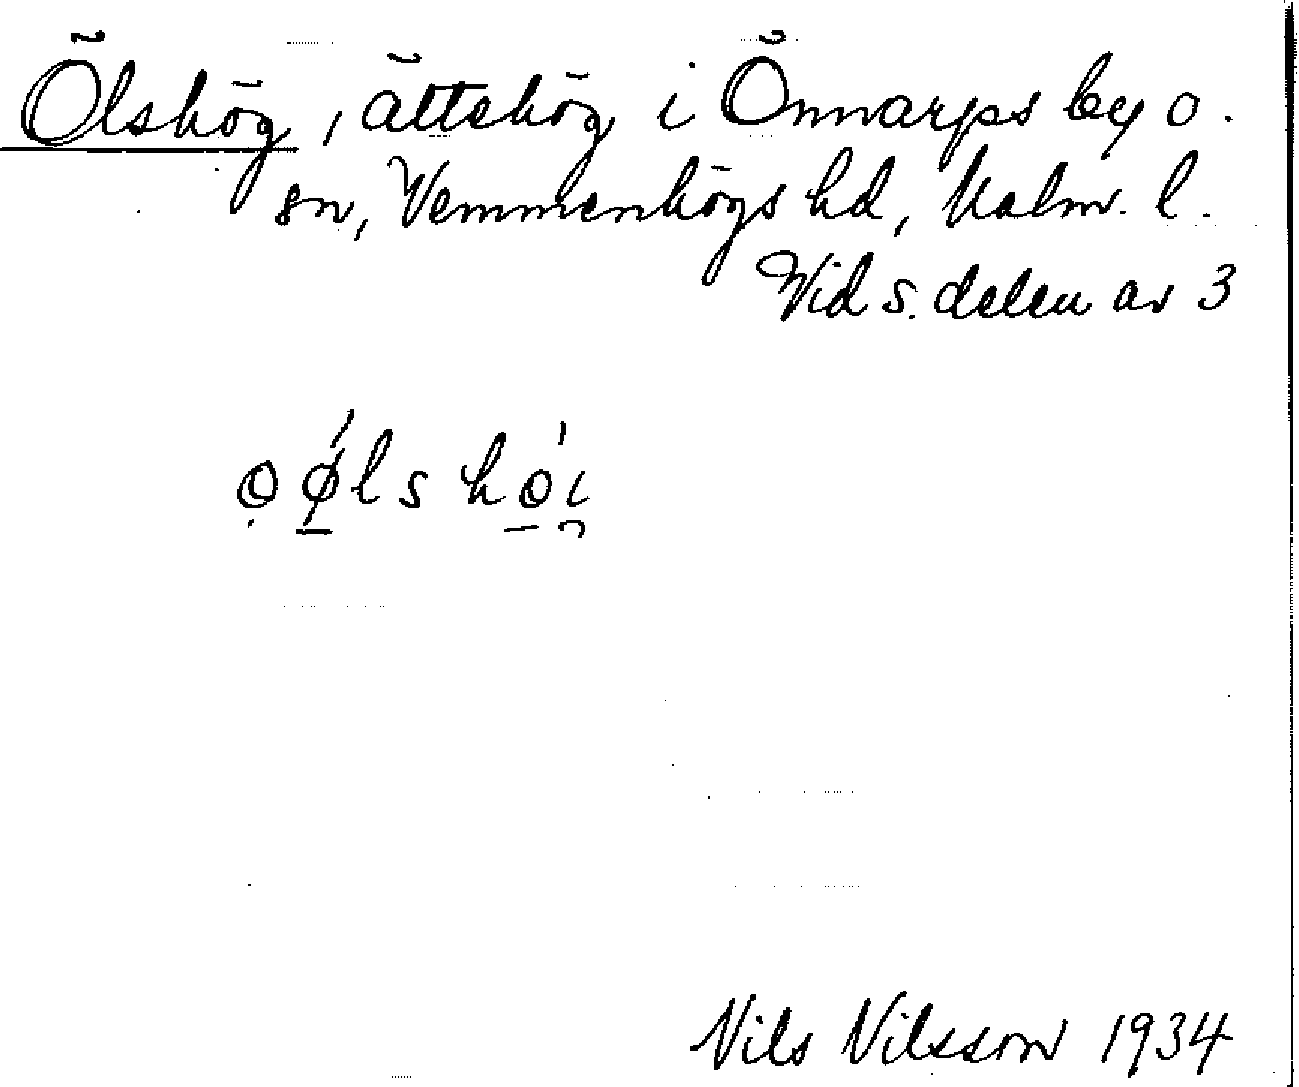 Ölshög, ättehög i Önnarps by o.
sn, Vemmenhögs hd, Malm. l.
Vid s. delen av 3
o̤ǿ̱ls hó̱i̯
Nils Nilsson 1934